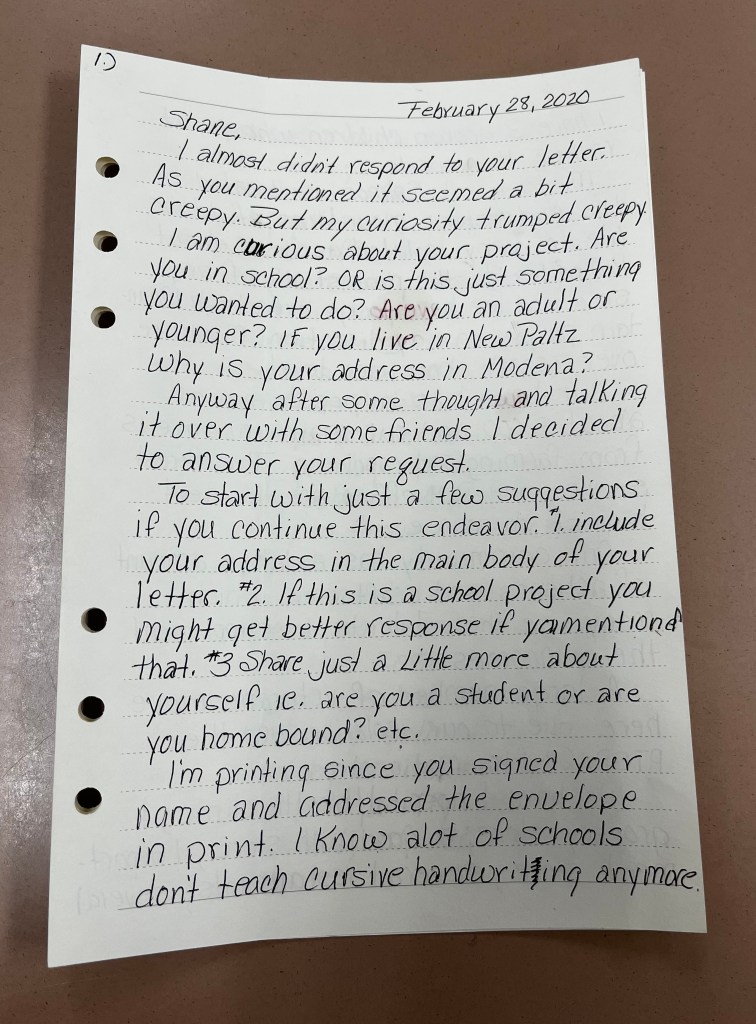 1.)
February 28, 2020
Shane,
I almost didn't respond to your letter.
As you mentioned it seemed a bit
creepy. But my curiosity trumped creepy.
I am curious about your project. Are
you in school? OR is this just something
you wanted to do? Are you an adult or
younger? IF you live in New Paltz
Why is your address in Modena?
Anyway after some thought and talking
it over with some friends I decided
to answer your request.
To start with just a few suggestions
if you continue this endeavor. #1. include
your address in the main body of your
letter. #2. If this is a school project you
might get better response if you mentiond
that. #3 Share just a Little more about
yourself ie. are you a student or are
you home bound? etc.
I'm printing since you signed your
name and addressed the envelope
in print. I Know alot of schools
don't teach cursive handwriting anymore.